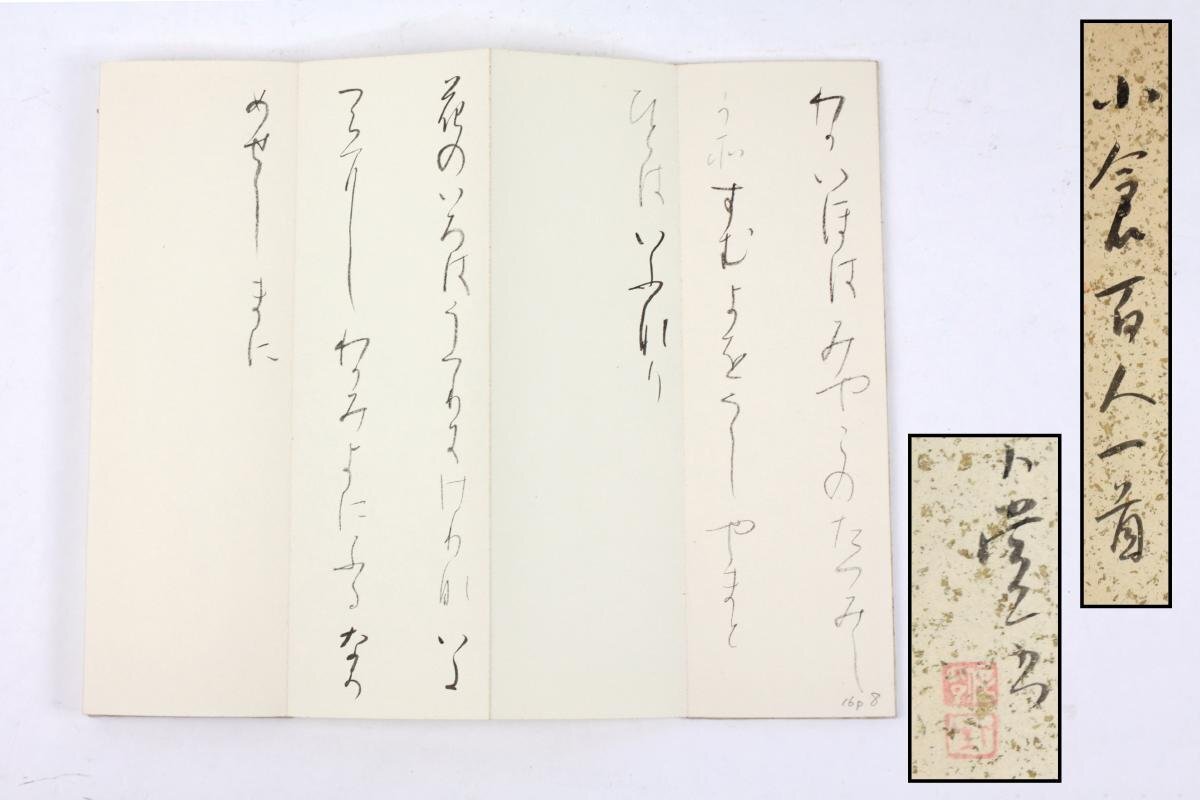 わかいほはみやこのたつみし
かすむよをうしやまと
ひとはいふなり
花のいろはうつりにけりないた
つらにわかみよにふるなか
めせしまに
16p 8
小倉百人一首